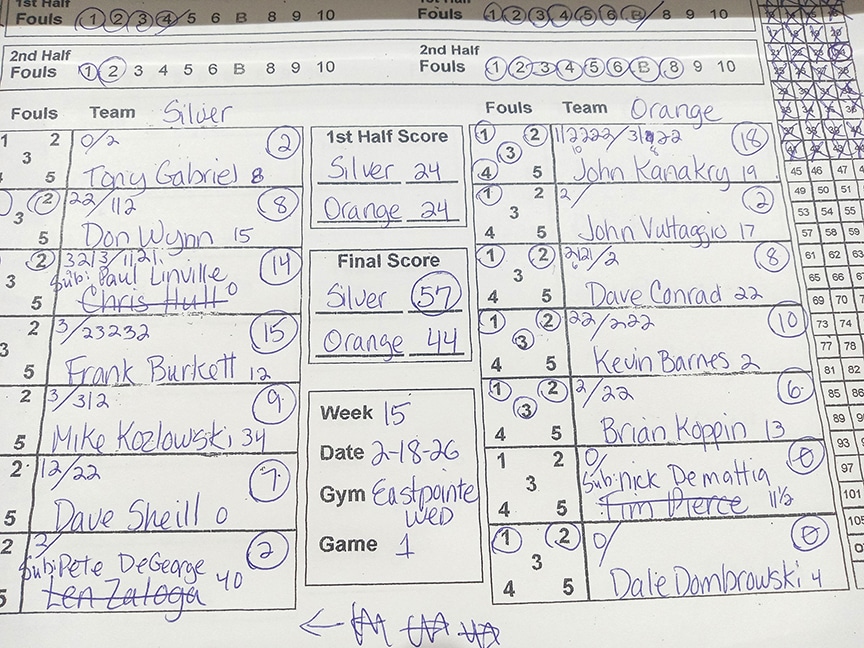 1st Half
Fouls 1 2 3 4 5 6 B 8 9 10
Fouls 1 2 3 4 5 6 B 8 9 10
2nd Half
Fouls 1 2 3 4 5 6 B 8 9 10
2nd Half
Fouls 1 2 3 4 5 6 B 8 9 10
Fouls Team Silver
1 2 3 5
0/2 2
Tony Gabriel 8
2 3 5
22/112 8
Don Wynn 15
2 3 5
323/1121 14
Sub: Paul Linville
Chris Hull 0
2 3 5
3/23232 15
Frank Burkett 12
2 5
3/312 9
Mike Kozlowski 34
2 5
12/22 7
Dave Sheill 0
2 5
2/ 2
Sub: Pete DeGeorge
Len Zaloga 40
1st Half Score
Silver 24
Orange 24
Final Score
Silver 57
Orange 44
Week 15
Date 2-18-26
Gym Eastpointe
WED
Game 1
Fouls Team Orange
1 2 3 4 5
18
John Kanakry 19
1 2 3 4 5
2/ 2
John Vattaggio 17
1 2 3 4 5
8
Dave Conrad 22
1 2 3 4 5
22/222 10
Kevin Barnes 2
1 2 3 4 5
2/22 6
Brian Koppin 13
1 2 3 4 5
0/ 0
Sub: Nick Demattia
Tim Pierce 11½
1 2 3 4 5
0/ 0
Dale Dombrowski 4
45 46 47
49 50 51
53 54 55
57 58 59
61 62 63
65 66 67
69 70 71
73 74
77 78
81 82
85 86
89
93
97
101